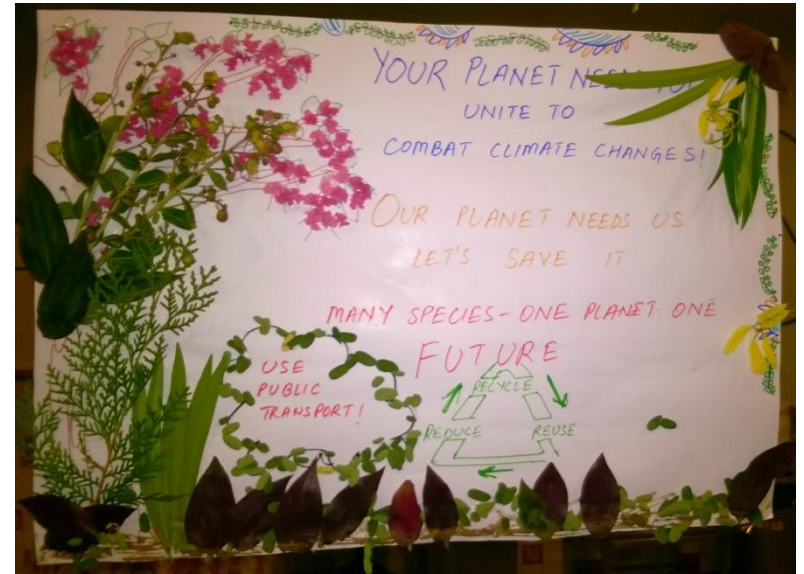 YOUR PLANET NEEDS YOU
UNITE TO
COMBAT CLIMATE CHANGES!
OUR PLANET NEEDS US
LET'S SAVE IT
MANY SPECIES - ONE PLANET - ONE
FUTURE
USE
PUBLIC
TRANSPORT!
RECYCLE
REDUCE
REUSE